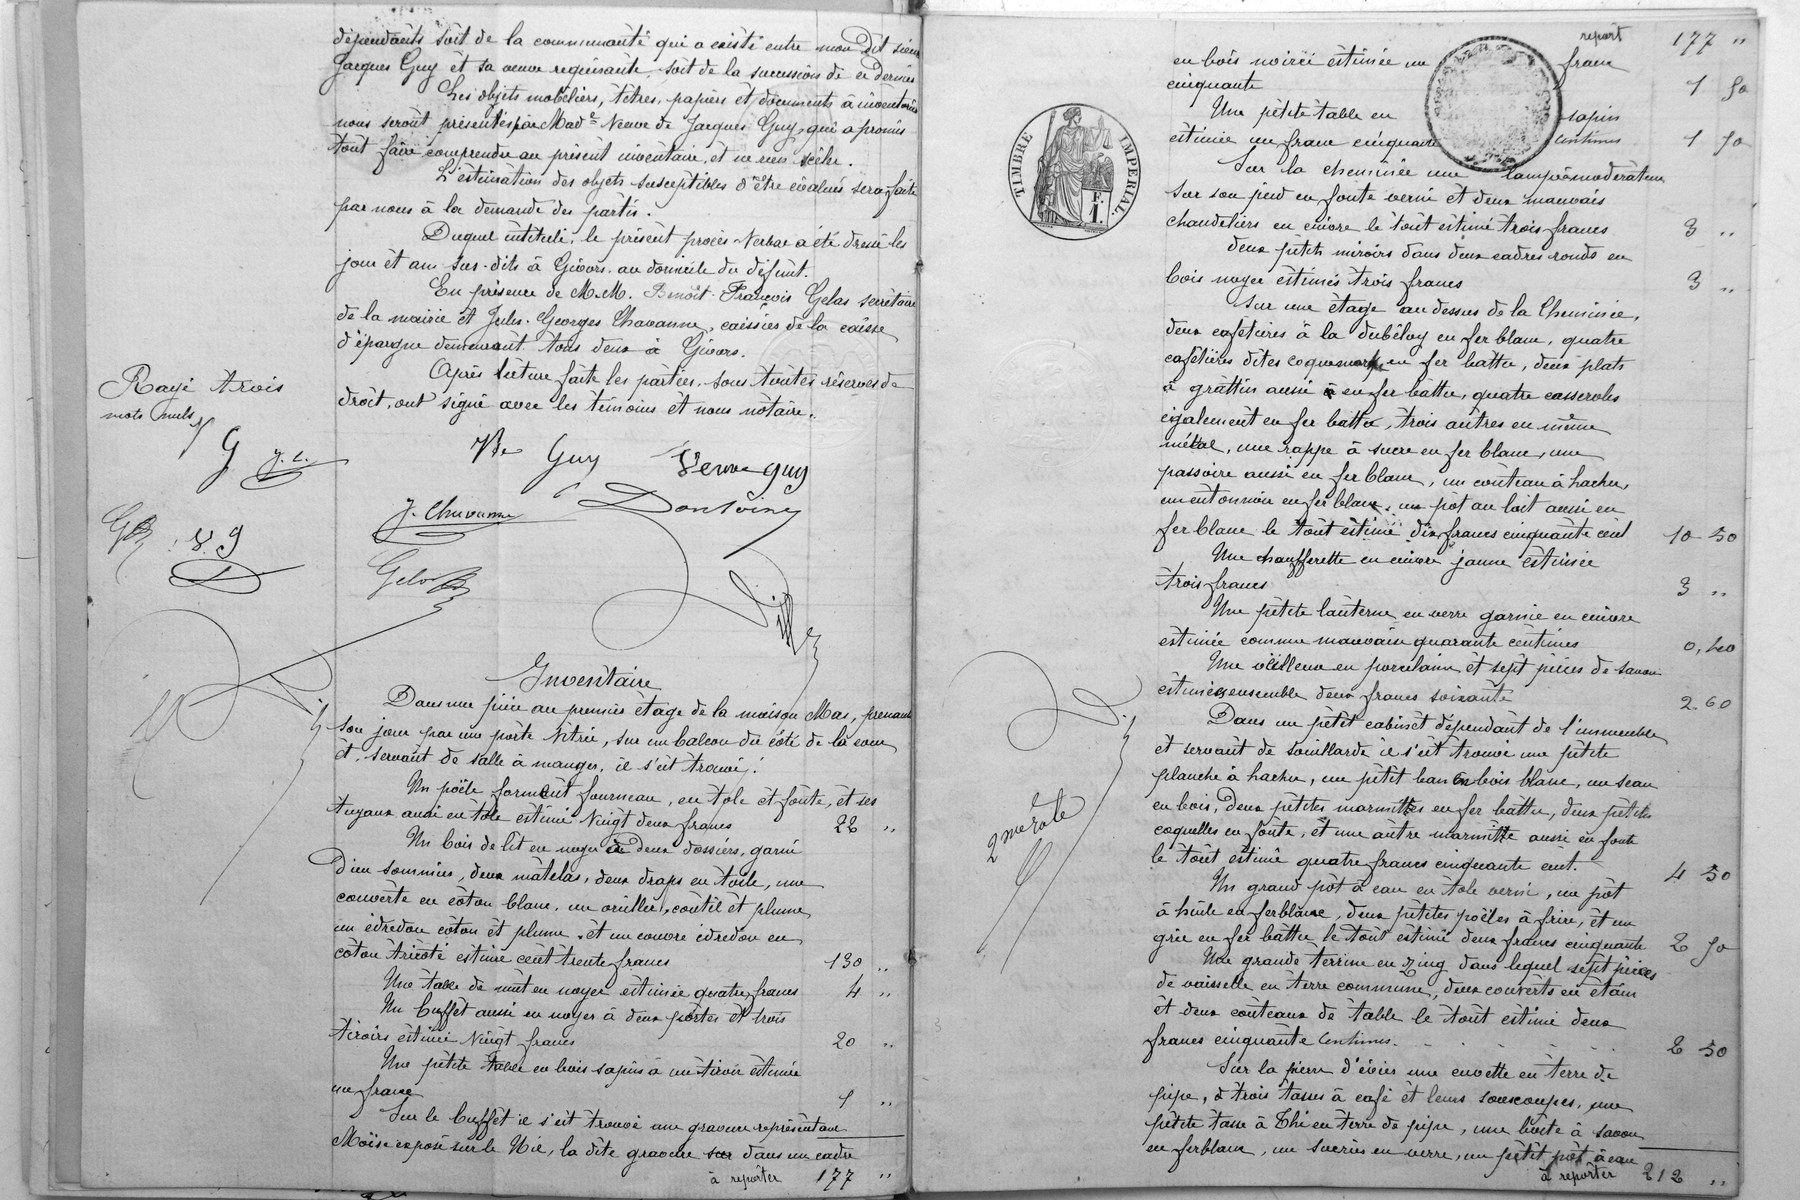 dépendants soit de la communauté qui a existé entre mon dit sieur
Jacques Guy et sa veuve requérante, soit de la succession de ce dernier
Les objets mobiliers, titres, papiers et documents à inventorier
nous seront présentés par Made Veuve de Jacques Guy, qui a promis
tout faire comprendre au présent inventaire, et ne rien
L'estimation des objets susceptibles d'être évalués sera faite
par nous à la demande des partis.
Duquel intitulé, le présent procès-verbal a été dressé les
jour et an sus-dits à Givors, au domicile du défunt.
En présence de M.M. Benoît-François Gelas secrétaire
de la mairie et Jules-Georges Chavanne, caissier de la caisse
d'épargne demeurant tous deux à Givors.
Après lecture faite les parties, sous toutes réserves de
droit, ont signé avec les témoins et nous notaire.
Rayé trois
mots nuls
G
J.C.
V.G
D
Vve Guy
Veuve Guy
J. Chavanne
Gelas
Inventaire
Dans une pièce au premier étage de la maison Mas, prenant
son jour par une porte vitrée, sur un balcon du côté de la cour
et, servant de salle à manger, il s'est trouvé:
Un poële formant fourneau, en tole et fonte, et ses
tuyaux aussi en tôle estimé vingt deux francs 22 "
Un bois de lit en noyer à deux dossiers, garni
d'un sommier, deux matelas, deux draps en toile, une
couverte en coton blanc, un oreiller, coutil et plume
un édredon coton et plume, et un couvre édredon en
coton tricoté estimé cent trente francs 130 "
Une table de nuit en noyer estimée quatre francs 4 "
Un buffet aussi en noyer à deux portes et trois
tiroirs estimé vingt francs 20 "
Une petite table en bois sapin à un tiroir estimée
un franc 1 "
Sur le buffet il s'est trouvé une gravure représentant
Moïse exposé sur le Nil, la dite gravure sur dans un cadre
à reporter 177 "
report 177 "
en bois noirci estimée un franc
cinquante 1 50
Une petite table en sapin
estimée un franc cinquante centimes 1 50
TIMBRE IMPERIAL.
E. F.
1.
Sur la cheminée une lampe modérateur
sur son pied en fonte verni et deux mauvais
chandeliers en cuivre le tout estimé trois francs 3 "
deux petits miroirs dans deux cadres ronds en
bois noyer estimés trois francs 3 "
Sur une étage au dessus de la Cheminée,
deux cafetières à la dubéloy en fer blanc, quatre
cafetières dites coquemar en fer battu, deux plats
à grattin aussi en fer battu, quatre casseroles
également en fer battu, trois autres en même
métal, une rappe à sucre en fer blanc, une
passoire aussi en fer blanc, un couteau à hacher,
un entonnoir en fer blanc, un pot au lait aussi en
fer blanc le tout estimé dix francs cinquante cent 10 50
Une chaufferette en cuivre jaune estimée
trois francs 3 "
Une petite lanterne en verre garnie en cuivre
estimée comme mauvaise quarante centimes 0,40
Une veilleuse en porcelaine et sept pièces de savon
estimées ensemble deux francs soixante 2.60
Dans un petit cabinet dépendant de l'immeuble
et servant de souillarde il s'est trouvé une petite
planche à hacher, un petit banc en bois blanc, un seau
en bois, deux petites marmittes en fer battu, deux petites
coquelles en fonte, et une autre marmitte aussi en fonte
le tout estimé quatre francs cinquante cent. 4 50
2me rôle
Un grand pot à eau en tole verni, un pot
à huile en ferblanc, deux petites poëles à frire, et un
gril en fer battu le tout estimé deux francs cinquante 2 50
Une grande terrine en zing dans lequel sept pièces
de vaisselle en terre commune, deux couverts en étain
et deux couteaux de table le tout estimé deux
francs cinquante centimes. 2 50
Sur la pierre d'évier une cuvette en terre de
pipe, trois tasses à café et leurs soucoupes, une
petite tasse à Thé en terre de pipe, une boîte à savon
en ferblanc, un sucrier en verre, un petit pot à eau
à reporter 212 "